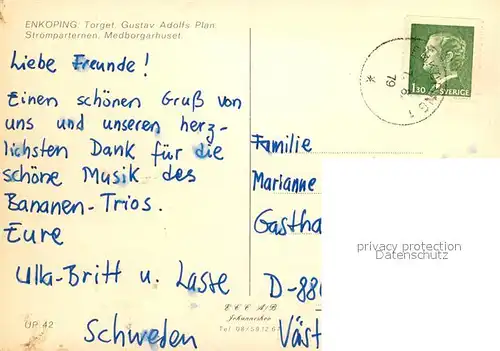 ENKÖPING: Torget. Gustav Adolfs Plan.
Strömparterren. Medborgarhuset.
Liebe Freunde!
Einen schönen Gruß von
uns und unseren herz-
lichsten Dank für die
schöne Musik des
Bananen-Trios.
Eure
Ulla-Britt u. Lasse
Schweden
UP 42
E C C AB
Johanneshov
Tel 08/58.12.6
1.30 SVERIGE
79
Familie
Marianne
Gastha
privacy protection
Datenschutz
D-88
Väst